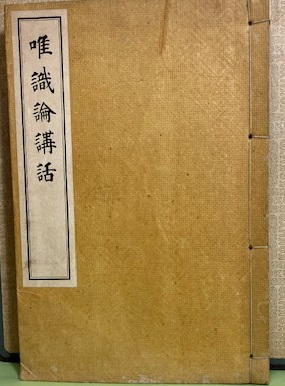 唯識論講話